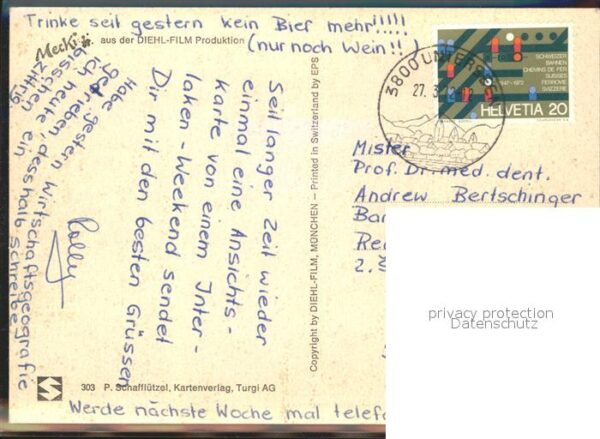 Trinke seit gestern kein Bier mehr!!!!!
(nur noch Wein!!)
Mecki
aus der DIEHL-FILM Produktion
Seit langer Zeit wieder
einmal eine Ansichts-
karte von einem Inter-
laken-Weekend sendet
Dir mit den besten Grüssen
Rolly
Habe gestern Wirtschaftsgeografie
geschrieben,
ich heute desshalb schreibe
bisschen ein
zittrig
303 P. Schafflützel, Kartenverlag, Turgi AG
Werde nächste Woche mal telefo
Copyright by DIEHL-FILM, MÜNCHEN – Printed in Switzerland by EPS
3800 UNTERSEEN
27. 3.
SCHWEIZER
BAHNEN
CHEMINS DE FER
SUISSES
FERROVIE
SVIZZERE
1847-1972
HELVETIA 20
Mister
Prof. Dr. med. dent.
Andrew Bertschinger
privacy protection
Datenschutz